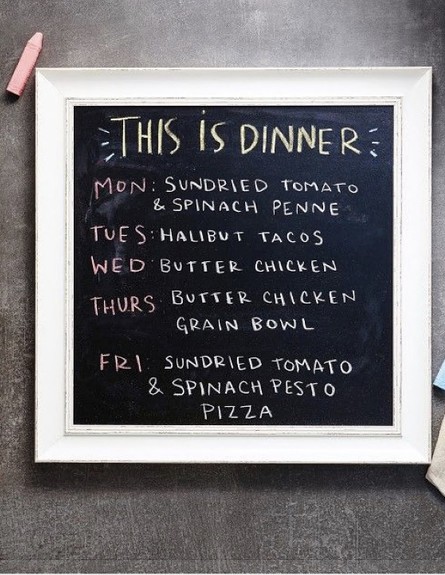 THIS IS DINNER
MON: SUNDRIED TOMATO
& SPINACH PENNE
TUES: HALIBUT TACOS
WED BUTTER CHICKEN
THURS BUTTER CHICKEN
GRAIN BOWL
FRI: SUNDRIED TOMATO
& SPINACH PESTO
PIZZA